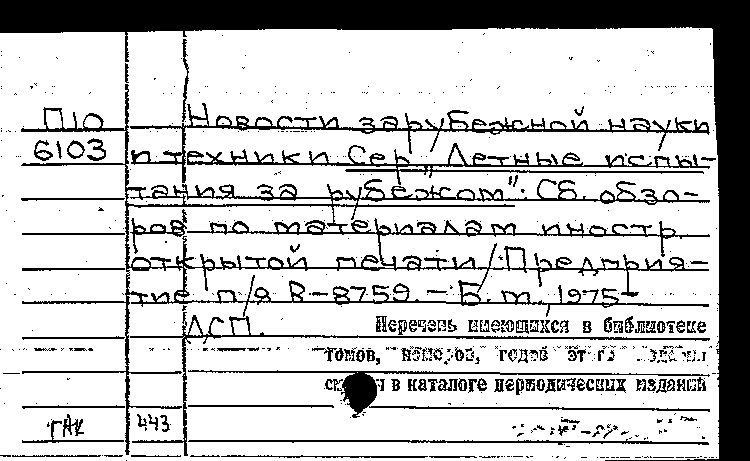 П10 Новости зарубежной науки
6103 и техники Сер. "Летные испы-
тания за рубежом": Сб. обзо-
ров по материалам иностр.
открытой печати / Предприя-
тие п/я В-8759. - Б. м., 1975-
ДСП. Перечень имеющихся в библиотеке
томов, номеров, годов этого
в каталоге периодических изданий
ГАК 443